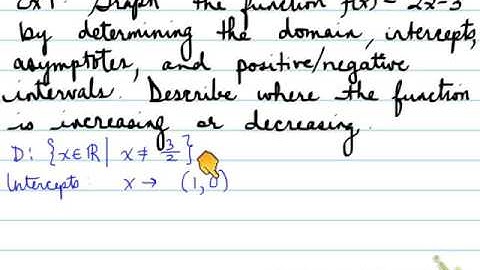 Ex 1: Graph the function f(x) = 2x-3
by determining the domain, intercepts,
asymptotes, and positive/negative
intervals. Describe where the function
is increasing or decreasing.
D: {x∈ℝ | x ≠ 3/2}
Intercepts: x → (1,0)